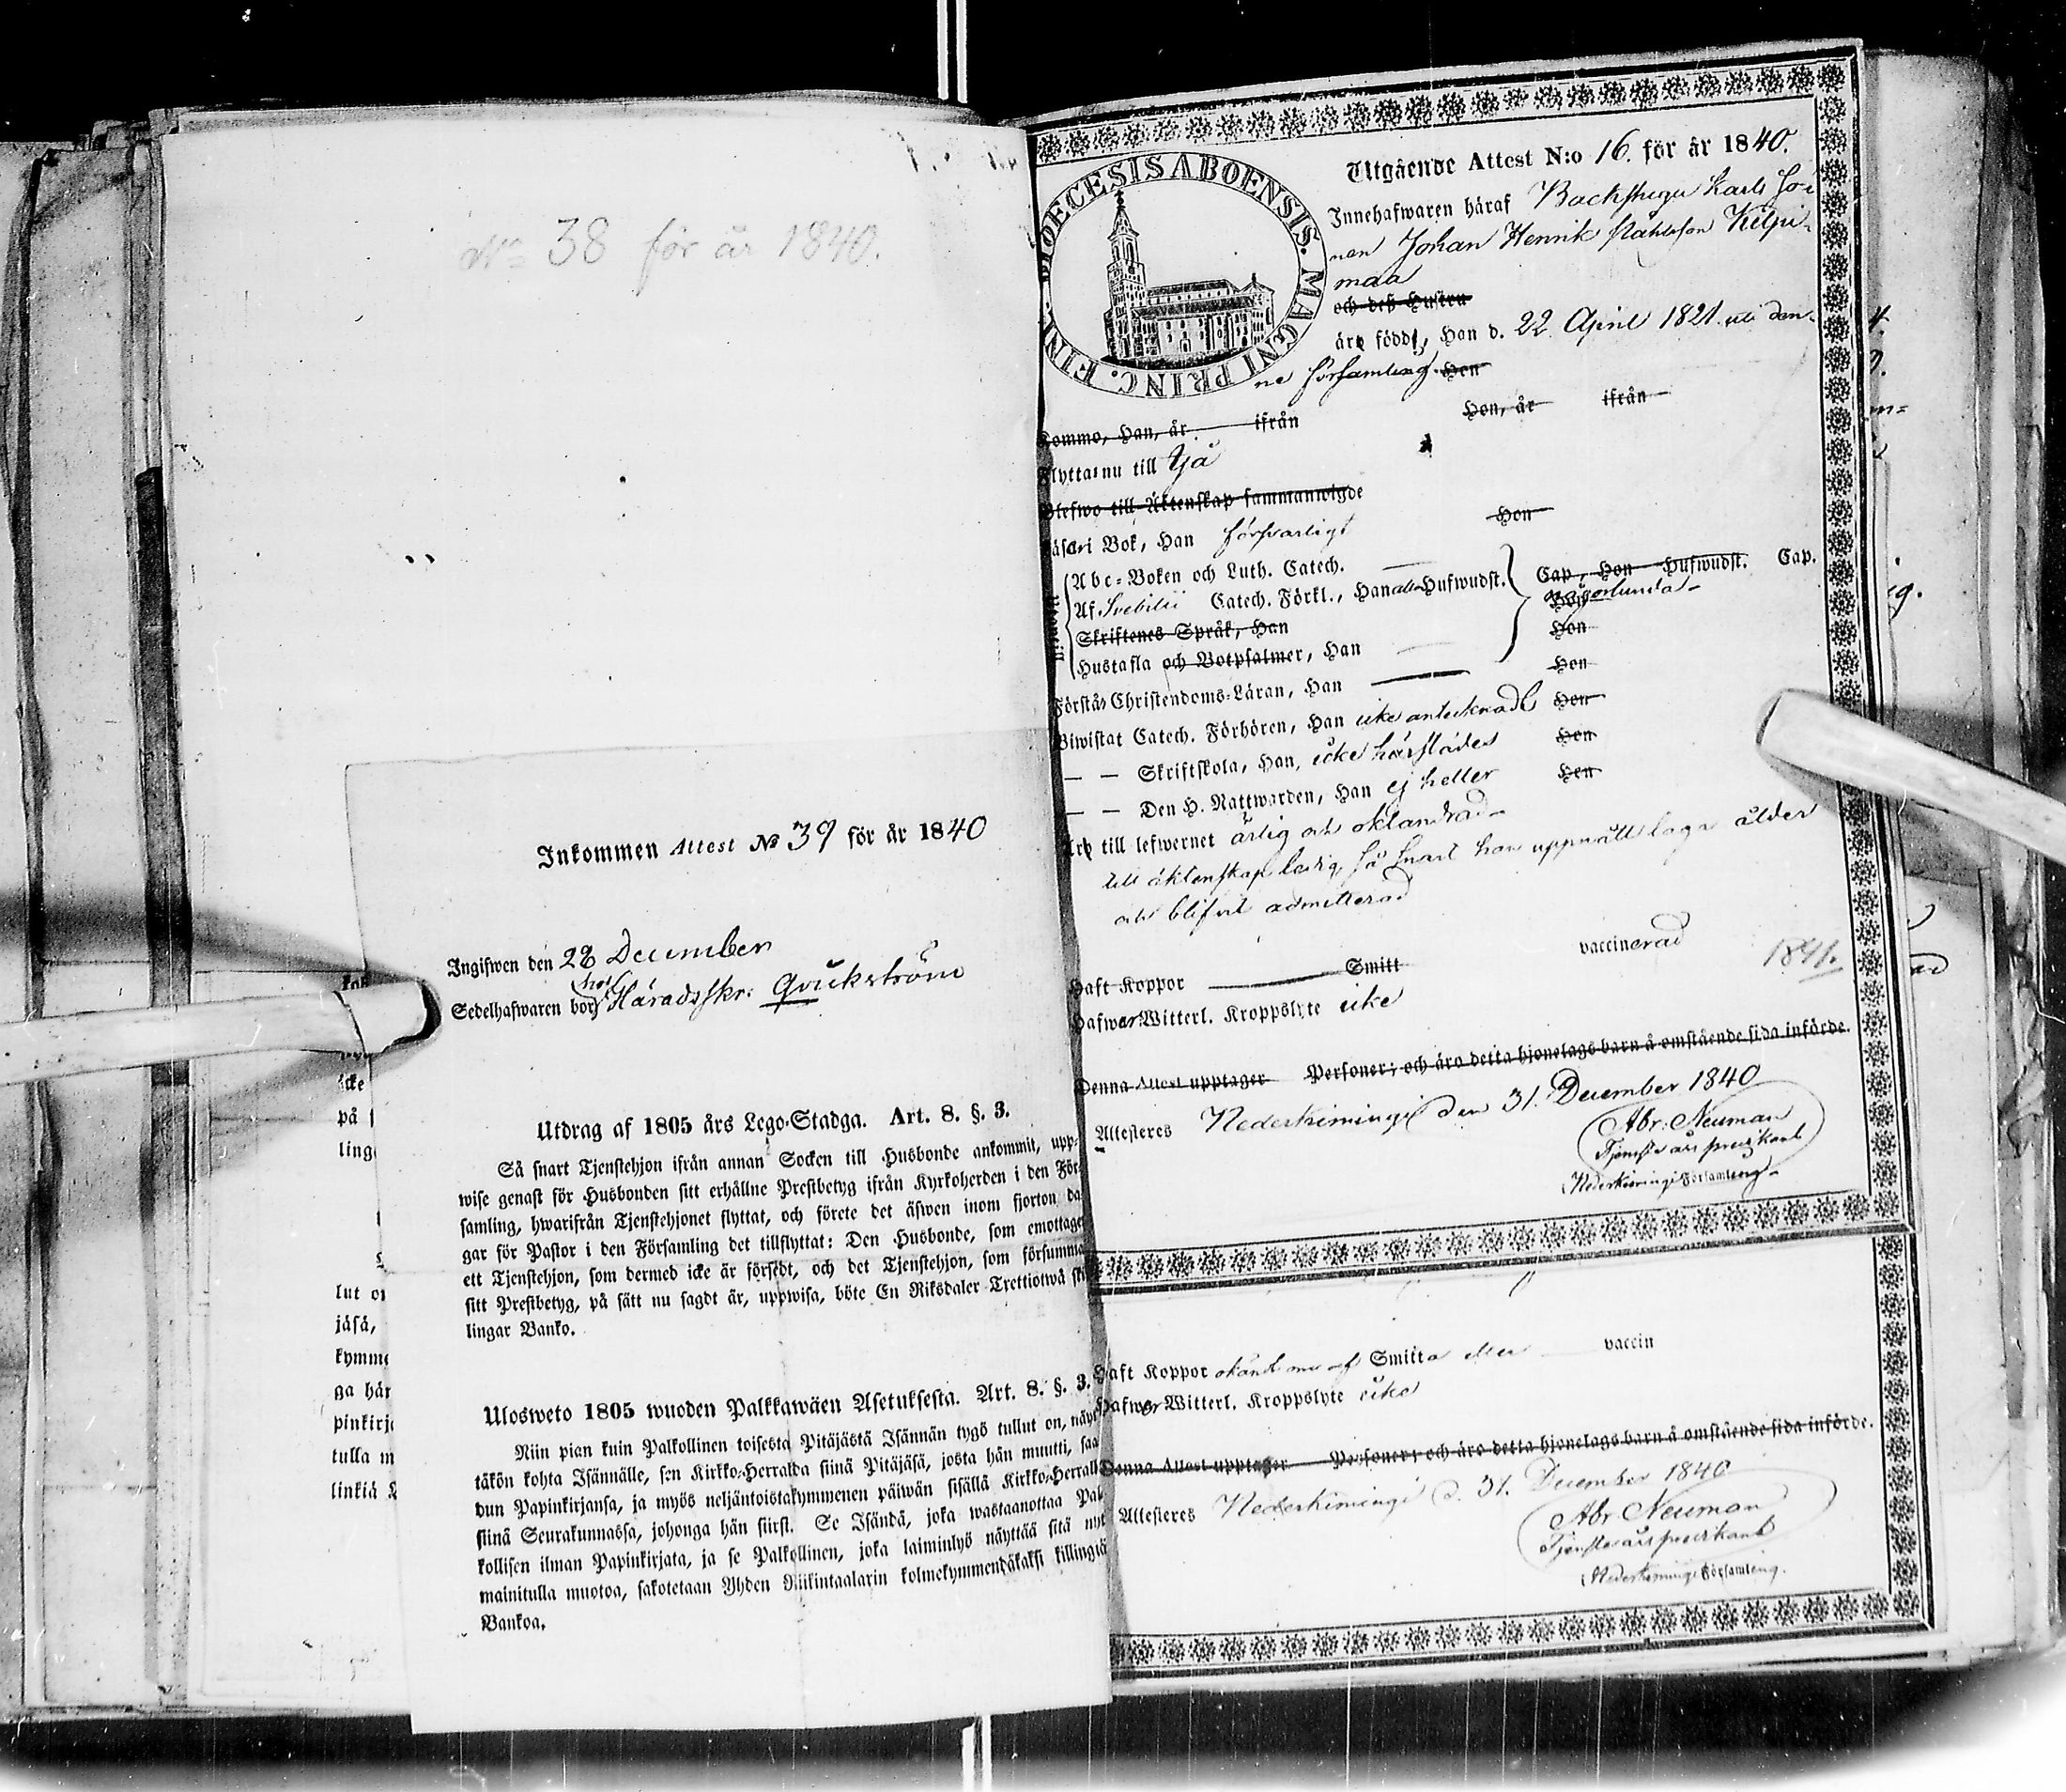 No 38 för år 1840.
Inkommen Attest No 39 för år 1840
Ingifwen den 28 December
hos
Sedelhafwaren bor Häradsskr: Qvickström
Utdrag af 1805 års Lego-Stadga. Art. 8. §. 3.
Så snart Tjenstehjon ifrån annan Socken till Husbonde ankommit, upp-
wise genast för Husbonden sitt erhållne Prestbetyg ifrån Kyrkoherden i den För-
samling, hwarifrån Tjenstehjonet flyttat, och förete det äfwen inom fjorton da-
gar för Pastor i den Församling det tillflyttat: Den Husbonde, som emottager
ett Tjenstehjon, som dermed icke är försedt, och det Tjenstehjon, som försumma
sitt Prestbetyg, på sätt nu sagdt är, uppwisa, böte En Riksdaler Trettiotwå skil
lingar Banko.
Ulosweto 1805 wuoden Palkkawäen Asetuksesta. Art. 8. §. 3.
Niin pian kuin Palkollinen toisesta Pitäjästä Isännän tygö tullut on, näyt
täkön kohta Isännälle, sen Kirkko-Herralda siinä Pitäjäsä, josta hän muutti, saa
dun Papinkirjansa, ja myös neljäntoistakymmenen päiwän sisällä Kirkko-Herrall
siinä Seurakunnassa, johonga hän siirst. Se Isändä, joka wastaanottaa Pal-
kollisen ilman Papinkirjata, ja se Palkollinen, joka laiminlyö näyttää sitä nyt
mainitulla muotoa, sakotetaan Yhden Riikintaalarin kolmekymmendäkaksi killingiä
Bankoa.
icke
på
ling
lut
jäsä,
kymme
ga här
pinkirj
tulla m
linkiä
DIOECESIS ABOENSIS. MAGNI PRINC. FIN.
Utgående Attest N:o 16. för år 1840.
Innehafwaren häraf Backstugu Karls So-
nen Johan Henrik Kilpi-
maa
och deß Hustru
äro född, Han d. 22 April 1821 uti den-
ne församling. Hon
Kommo, Han, år ifrån Hon, år ifrån
Flyttar nu till Ijå
Blefwo till Äktenskap sammanwigde
Läser i Bok, Han försvarligt Hon
Abc-Boken och Luth. Catech.
Af Svebilii Catech. Förkl., Han alla Hufwudst. Cap., Hon Hufwudst. Cap.
Hon
Skriftenes Språk, Han Hon
Hustafla och Botpsalmer, Han Hon
Förstår Christendoms-Läran, Han Hon
Biwistat Catech. Förhören, Han icke antecknadt Hon
— — Skriftskola, Han, icke härstädes Hon
— — Den H. Nattwarden, Han ej heller
Äro till lefwernet ärlig och oklandrad-
till äktenskap ledig, så snart han uppnått laga ålder
och blifvit admitterad
Haft Koppor Smitt vaccinerad 1841.
Hafwer Witterl. Kroppslyte icke
Denna Attest upptager Personer; och äro detta hjonelags barn å omstående sida införde.
Attesteres Nederkimingi den 31. December 1840
Abr. Neuman
Tjenste års predikant
Nederkimingi Församling-
Haft Koppor okändt om af Smitta eller vaccin
Hafwer Witterl. Kroppslyte icke
Denna Attest upptager Personer; och äro detta hjonelags barn å omstående sida införde.
Attesteres Nederkimingi d. 31. December 1840
Abr Neuman
Tjenste års predikant
Nederkimingi Församling.